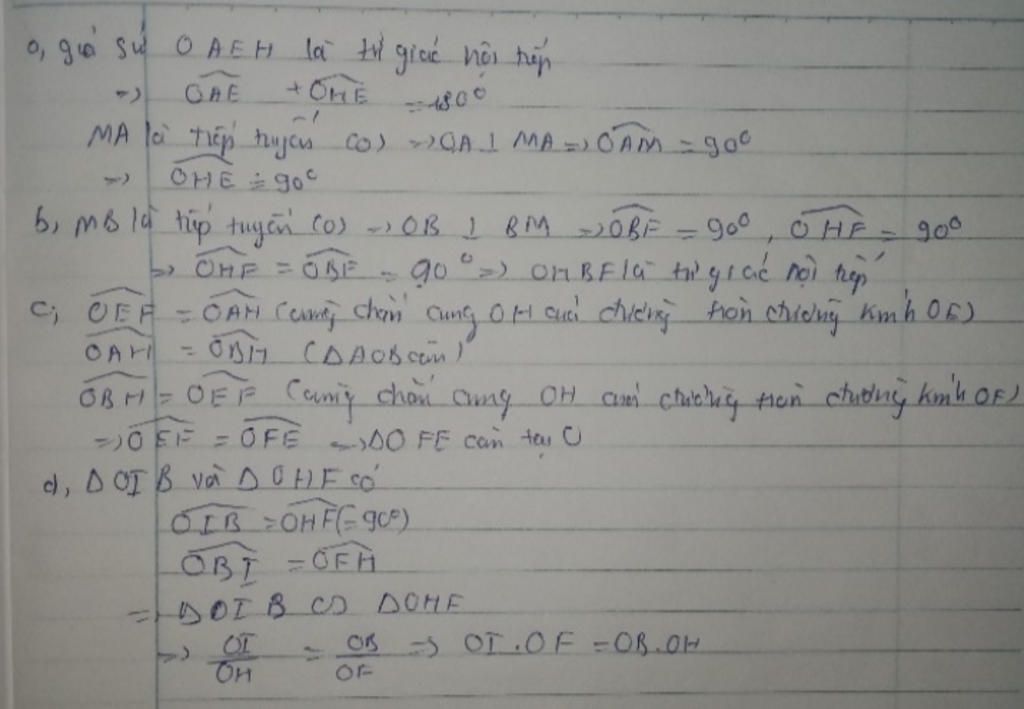 a, giả sử OAEH là tứ giác nội tiếp
=> \widehat{OAE} + \widehat{OHE} = 180°
MA là tiếp tuyến (O) => OA ⊥ MA => \widehat{OAM} = 90°
=> \widehat{OHE} = 90°
b, MB là tiếp tuyến (O) => OB ⊥ BM => \widehat{OBF} = 90°, \widehat{OHF} = 90°
=> \widehat{OHF} = \widehat{OBF} = 90° => OHBF là tứ giác nội tiếp
c, \widehat{OEF} = \widehat{OAH} (cùng chắn cung OH của đường tròn đường kính OE)
\widehat{OAH} = \widehat{OBH} (ΔAOB cân)
\widehat{OBH} = \widehat{OEF} (cùng chắn cung OH của đường tròn đường kính OF)
=> \widehat{OEF} = \widehat{OFE} => ΔOFE cân tại O
d, ΔOIB và ΔOHF có
\widehat{OIB} = \widehat{OHF} (=90°)
\widehat{OBI} = \widehat{OFH}
=> ΔOIB ∽ ΔOHF
=> \frac{OI}{OH} = \frac{OB}{OF} => OI.OF = OB.OH